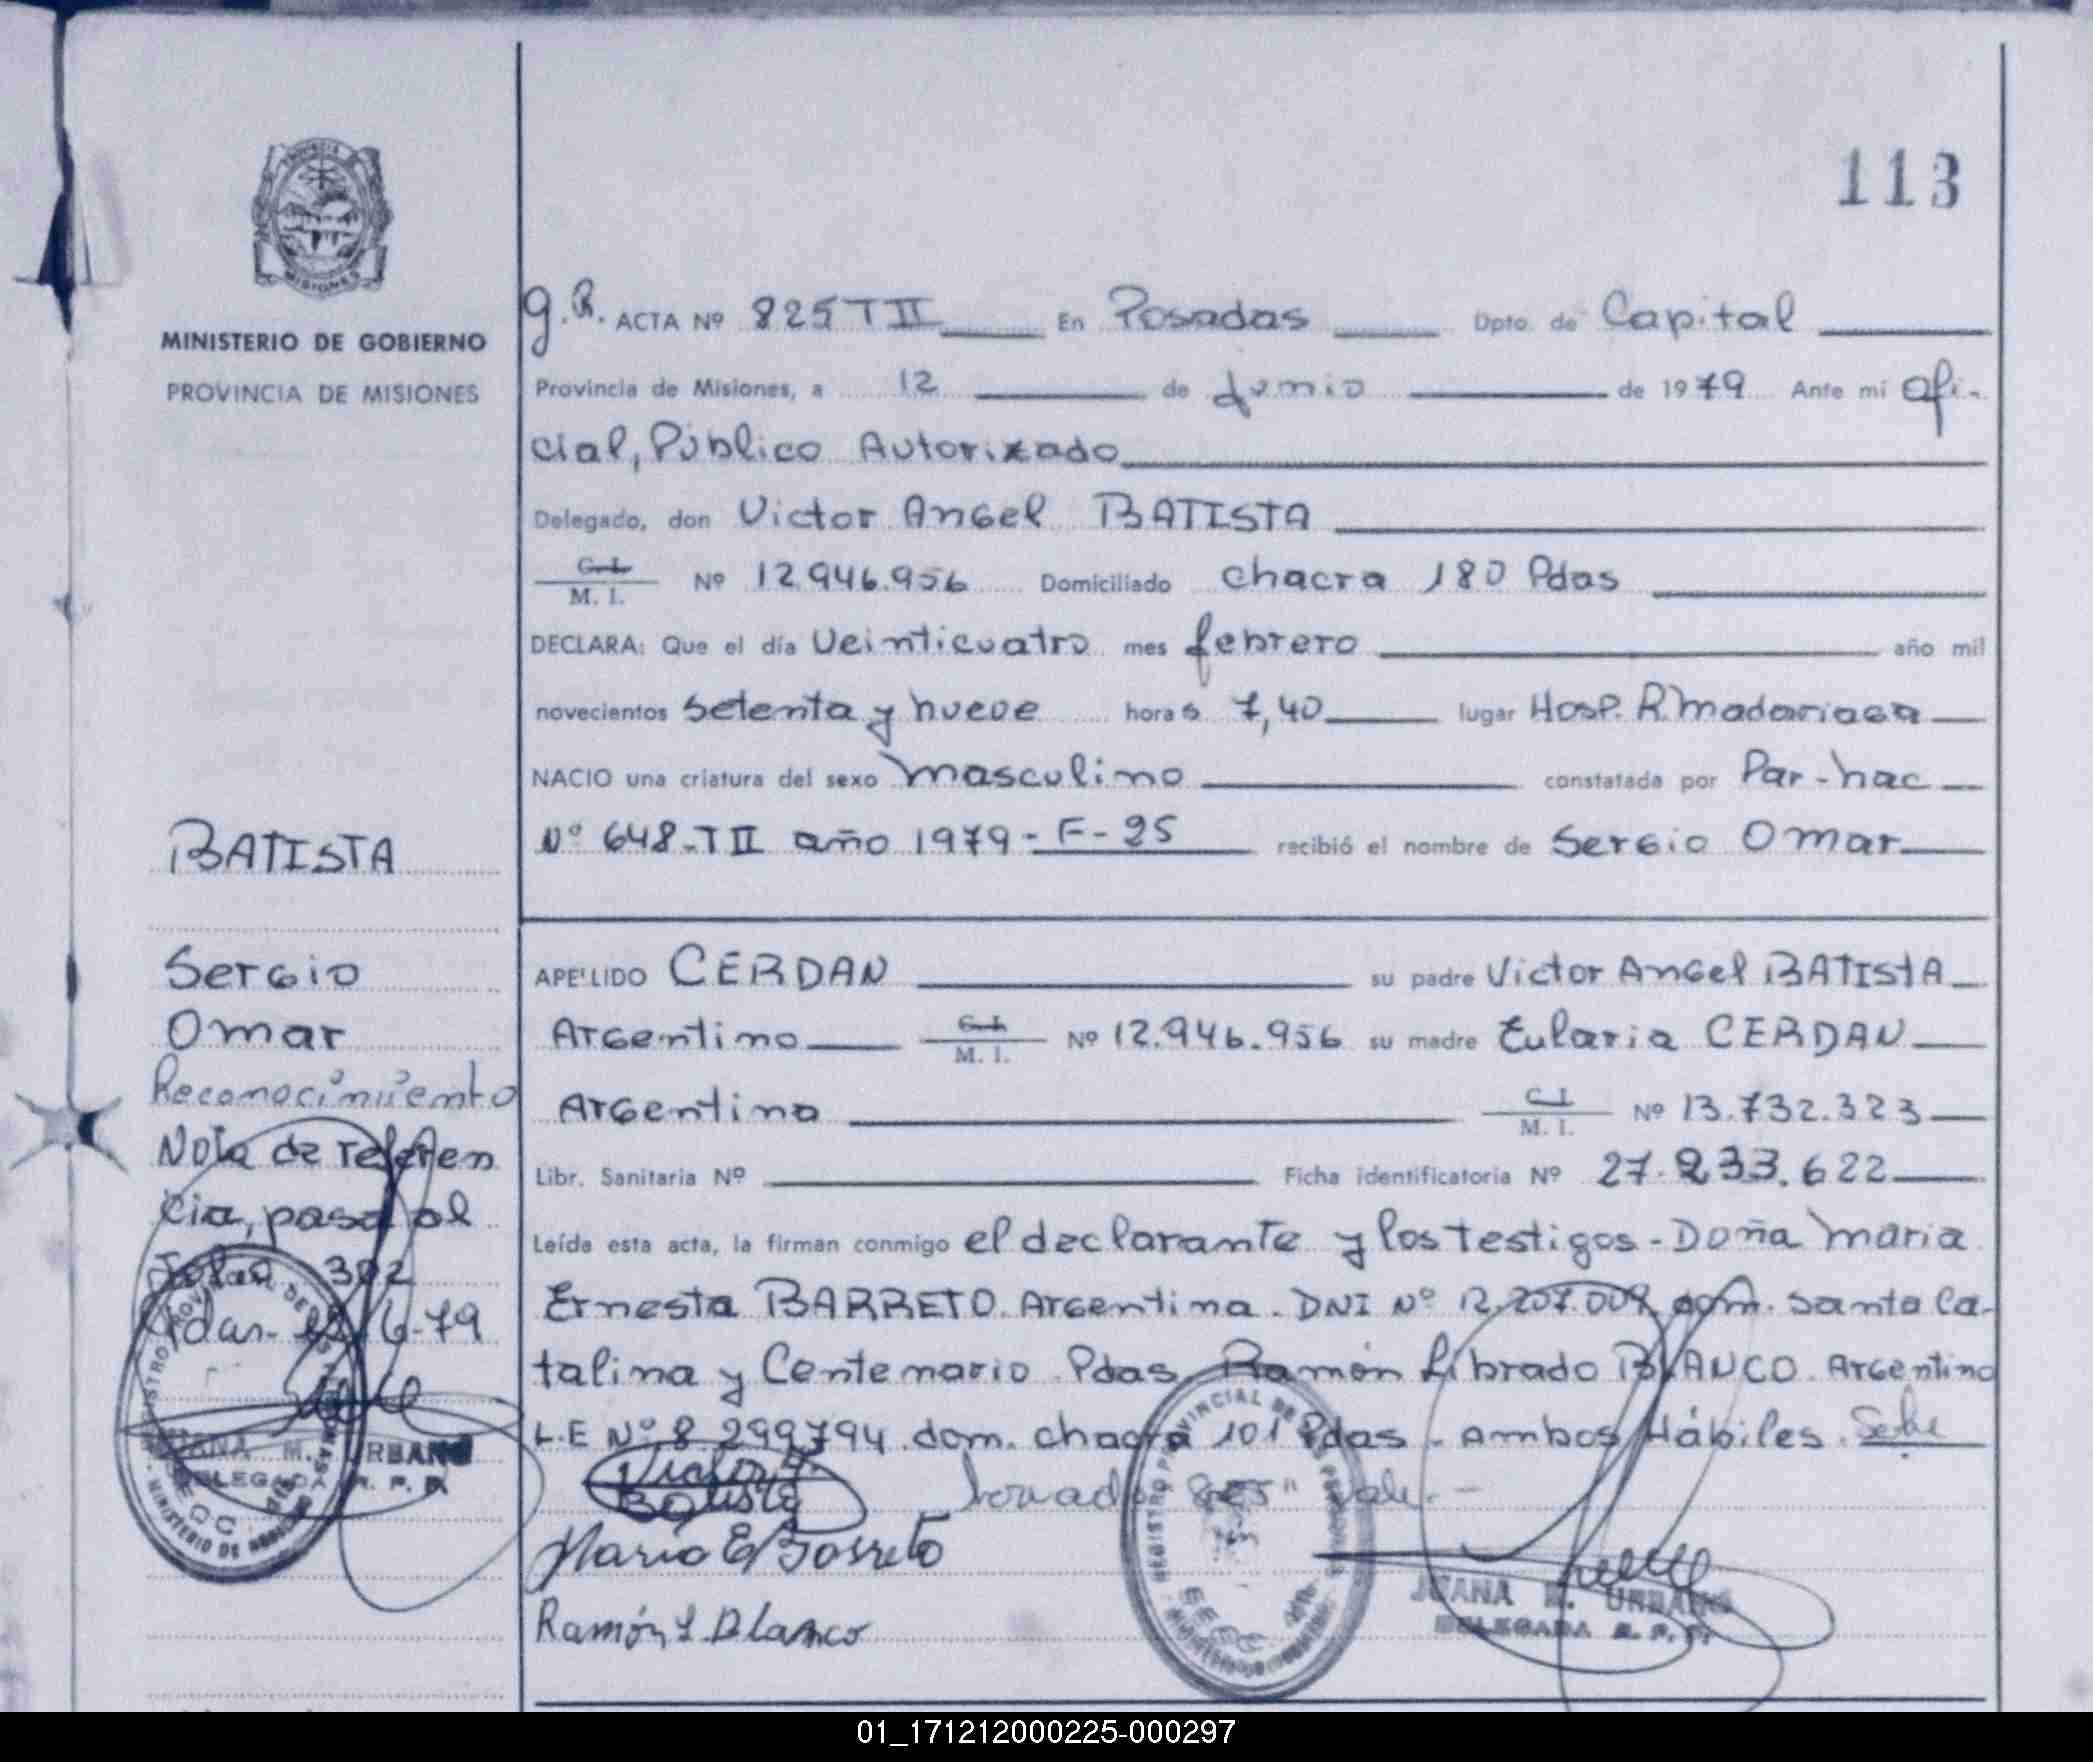 113
MINISTERIO DE GOBIERNO
PROVINCIA DE MISIONES
g.R. ACTA Nº 825 T II En Posadas Dpto. de Capital
Provincia de Misiones, a 12 de Junio de 1979 Ante mí Ofi-
cial, Público Autorizado
Delegado, don Victor Angel BATISTA
C.I. M. I. Nº 12.946.956 Domiciliado chacra 180 Pdas
DECLARA: Que el día Veinticuatro mes febrero año mil
novecientos setenta y nueve horas 7,40 lugar Hosp. R. Madariaga
NACIO una criatura del sexo masculino constatada por Par-nac
Nº 648-T II año 1979 - F-25 recibió el nombre de Sergio Omar
APELLIDO CERDAN su padre Victor Angel BATISTA
Argentino C.I. M. I. Nº 12.946.956 su madre Eularia CERDAN
Argentina C.I. M. I. Nº 13.732.323
Libr. Sanitaria Nº Ficha identificatoria Nº 27.233.622
Leída esta acta, la firman conmigo el declarante y los testigos - Doña Maria
Ernesta BARRETO. Argentina. DNI Nº 12.207.009 dom. Santa Ca-
talina y Centenario Pdas. Ramón Librado BLANCO. Argentino
L.E Nº 8.299794 dom. chacra 101 Pdas - Ambos Hábiles.
Victor
Batista
Maria E Barreto
Ramón L Blanco
REGISTRO PROVINCIAL DE LAS PERSONAS
JUANA M. URBANO
DELEGADA R. P. P.
BATISTA
Sergio
Omar
Reconocimiento
Nota de referen
cia, pasa al
Folio 302
Pdas- 12-6-79
JUANA M. URBANO
DELEGADA R. P. P.
01_171212000225-000297